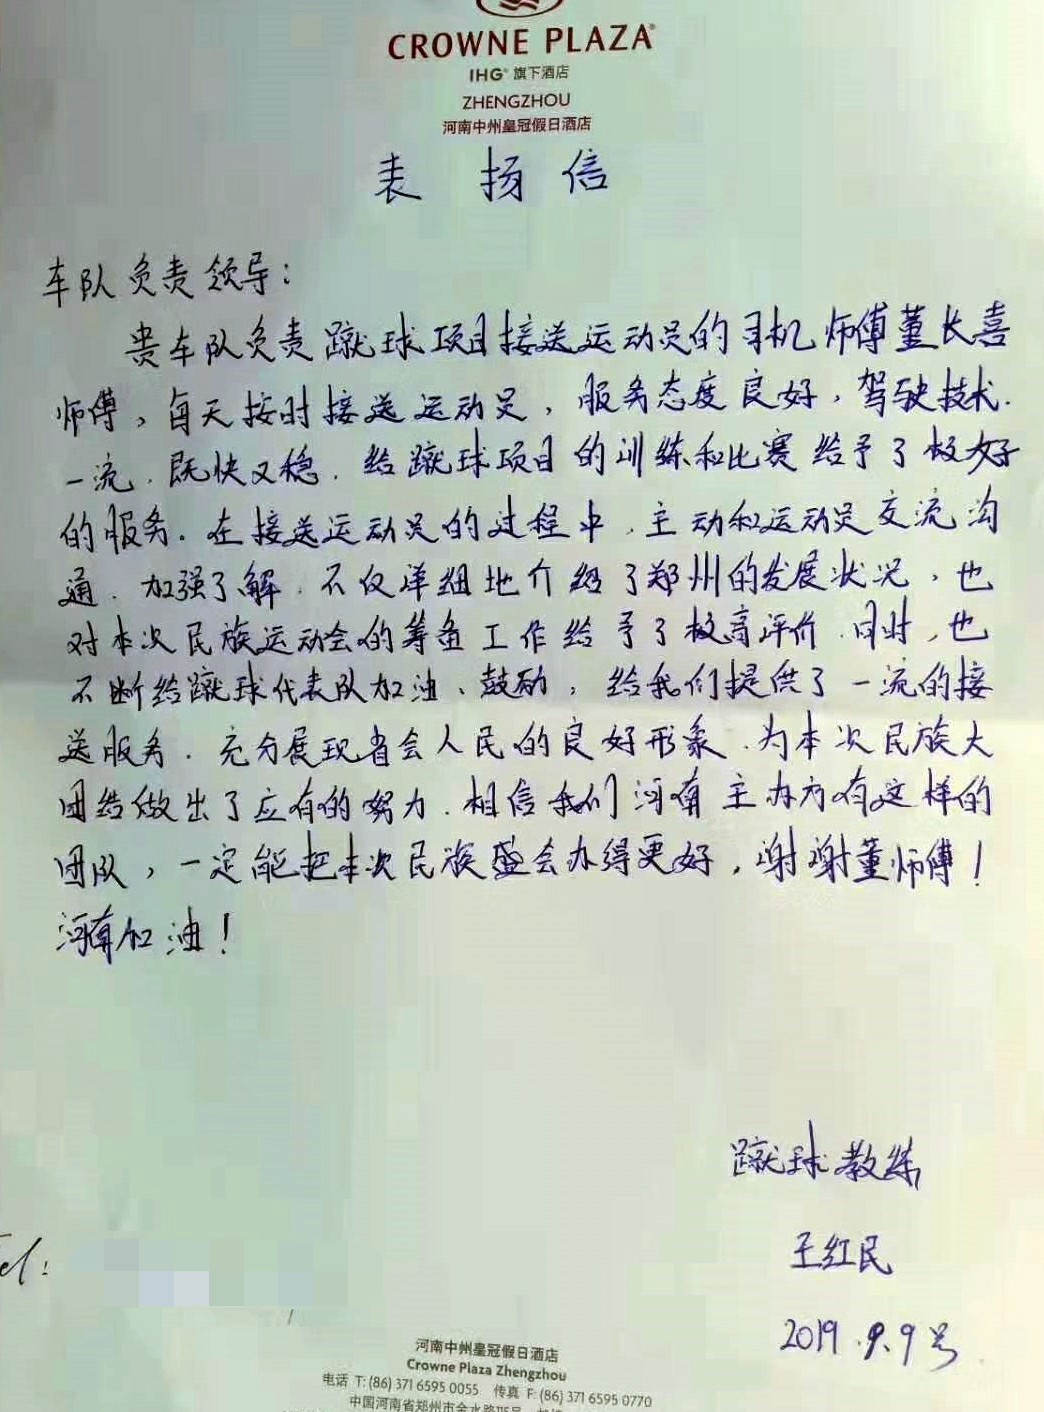 CROWNE PLAZA
IHG® 旗下酒店
ZHENGZHOU
河南中州皇冠假日酒店
表扬信
车队负责领导：
贵车队负责蹴球项目接送运动员的司机师傅董长喜
师傅，每天按时接送运动员，服务态度良好，驾驶技术.
一流.既快又稳.给蹴球项目的训练和比赛给予了极好
的服务.在接送运动员的过程中.主动和运动员交流沟
通.加强了解.不仅详细地介绍了郑州的发展状况，也
对本次民族运动会的筹备工作给予了极高评价.同时，也
不断给蹴球代表队加油、鼓励，给我们提供了一流的接
送服务.充分展现省会人民的良好形象.为本次民族大
团结做出了应有的努力.相信我们河南主办方有这样的
团队，一定能把本次民族盛会办得更好，谢谢董师傅！
河南加油！
蹴球教练
王红民
el:
2019.9.9号
河南中州皇冠假日酒店
Crowne Plaza Zhengzhou
电话 T: (86) 371 6595 0055 传真 F: (86) 371 6595 0770
中国河南省郑州市金水路115号